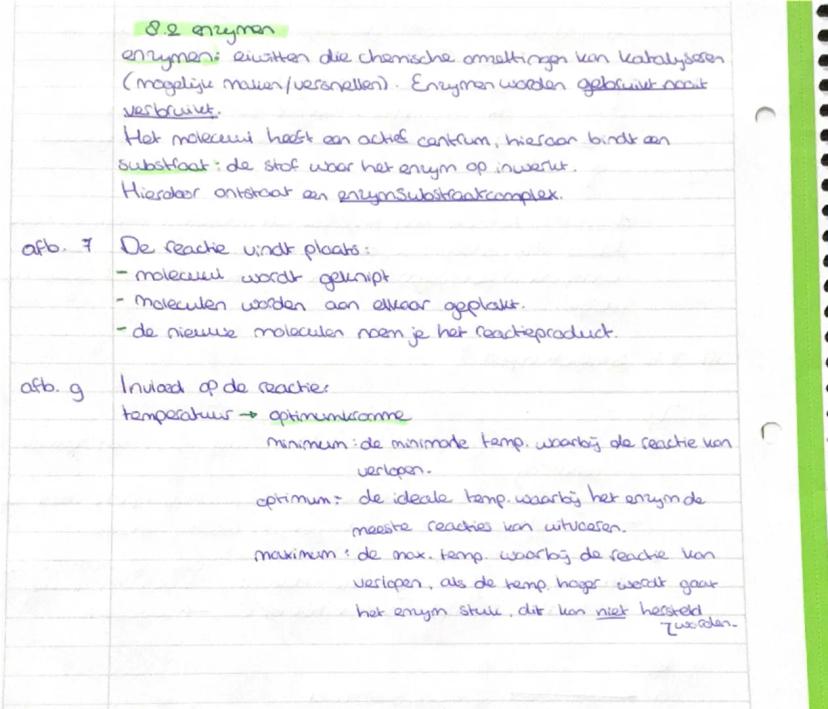 8.2 enzymen
enzymen: eiwitten die chemische omzettingen kan katalyseren
(mogelijk maken/versnellen). Enzymen worden gebruikt nooit
verbruikt.
Het molecuul heeft een actief centrum, hieraan bindt een
substraat: de stof waar het enzym op inwerkt.
Hierdoor ontstaat een enzymsubstraatcomplex.
afb. 7 De reactie vindt plaats:
- molecuul wordt geknipt
- moleculen worden aan elkaar geplakt.
- de nieuwe moleculen noem je het reactieproduct.
afb. 9 Invloed op de reactie:
temperatuur → optimumkromme
minimum: de minimale temp. waarbij de reactie kan
verlopen.
optimum: de ideale temp. waarbij het enzym de
meeste reacties kan uitvoeren.
maximum: de max. temp. waarbij de reactie kan
verlopen, als de temp. hoger wordt gaat
het enzym stuk, dit kan niet hersteld
worden.